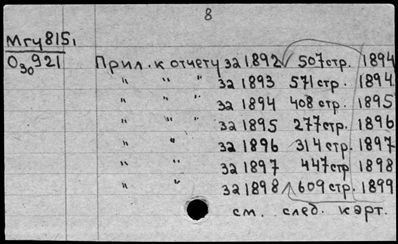 8
Мгу815,
О₃₀921 Прил. к отчету за 1892 507стр. 1894
" " " за 1893 571стр. 1894
" " " за 1894 408стр. 1895
" " за 1895 277стр. 1896
" " за 1896 314стр. 1897
" " за 1897 447стр 1898
" " за 1898 609стр. 1899
см. след. карт.